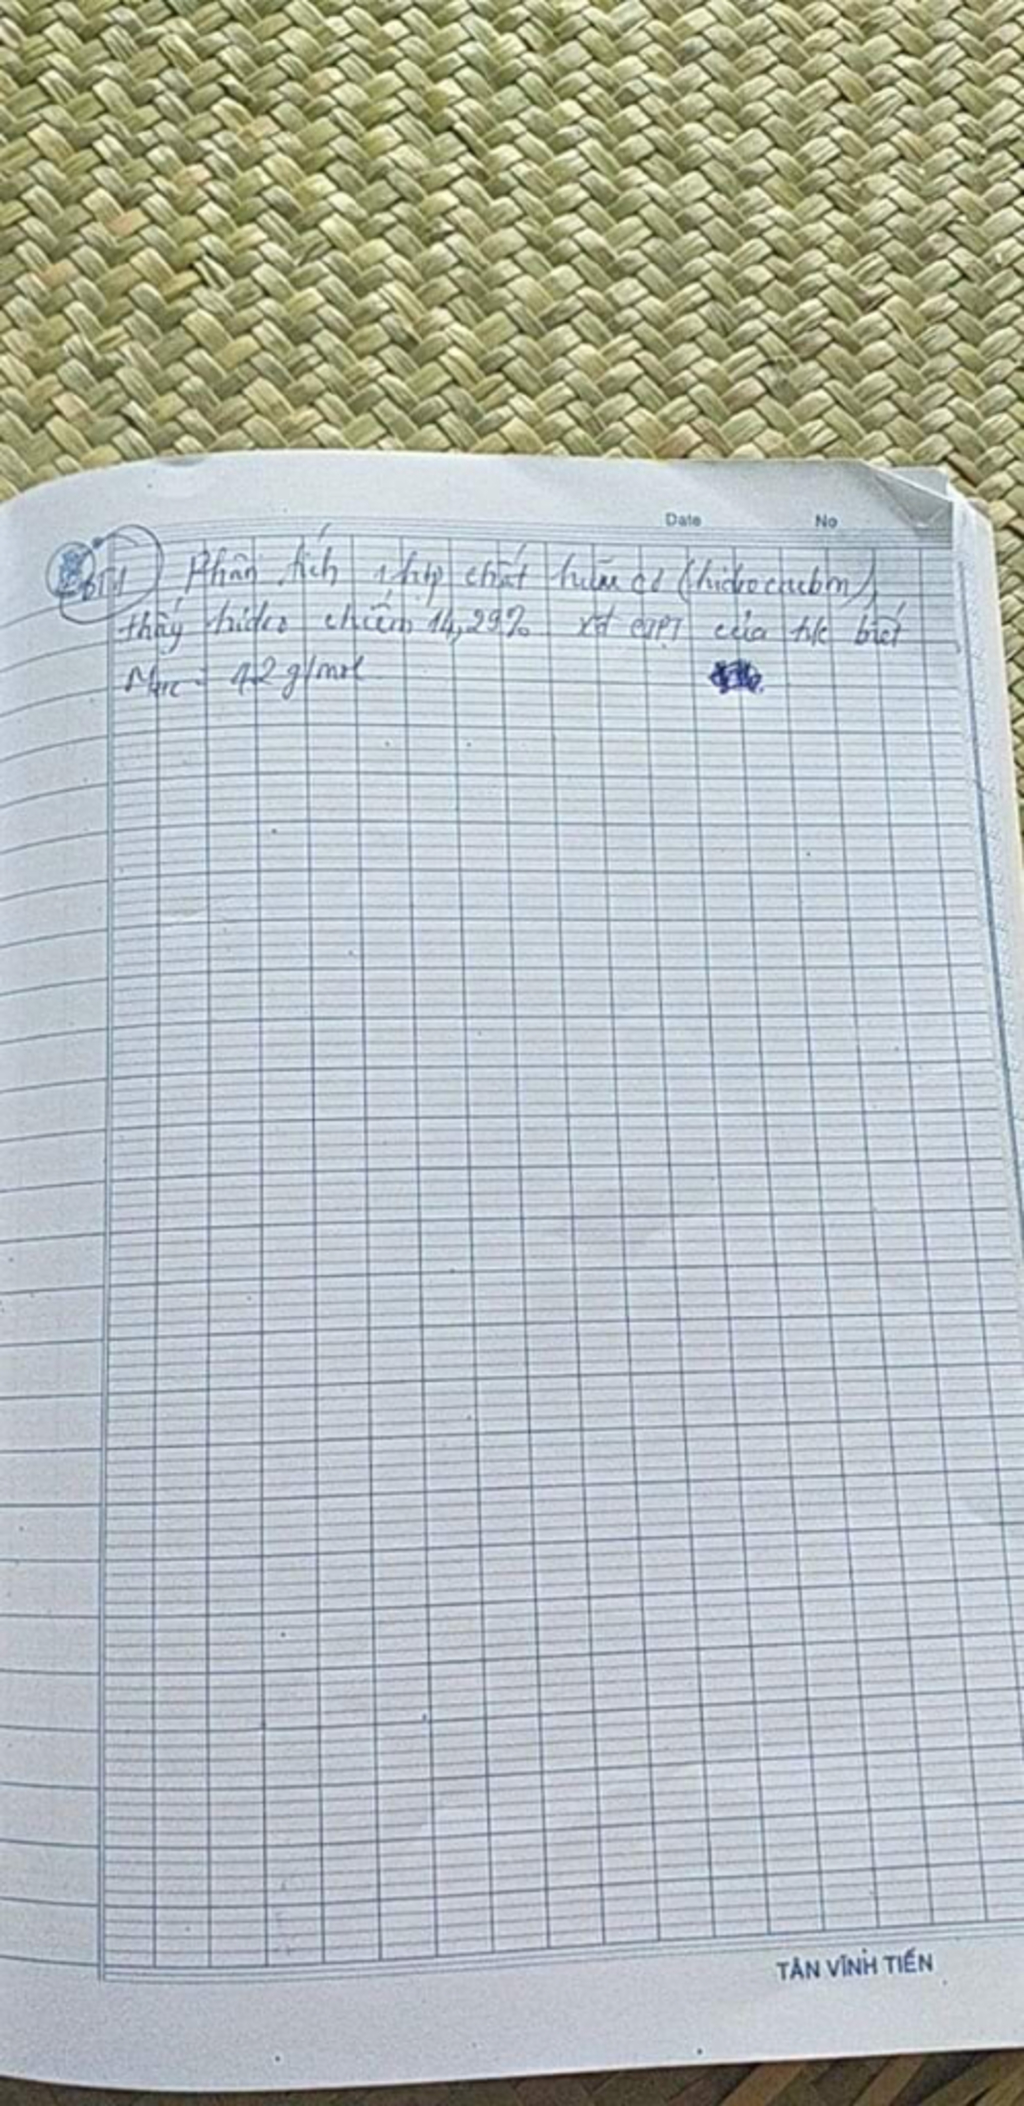 Date No
BT1 Phân tích 1 hợp chất hữu cơ (hidrocacbon),
thấy hidro chiếm 14,29% xđ CTPT của hk biết
= 42 g/mol
TÂN VĨNH TIẾN